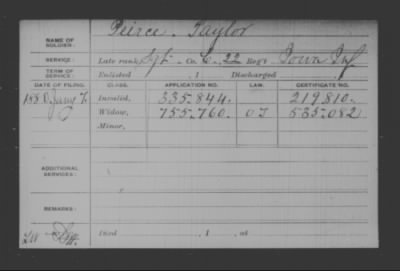 NAME OF SOLDIER: Peirce, Taylor
SERVICE: Late rank, Sgt Co. E, 22 Reg't Iowa Inf
TERM OF SERVICE: Enlisted , 1 Discharged
DATE OF FILING. CLASS. APPLICATION NO. LAW. CERTIFICATE NO.
1880 Jany 7. Invalid, 335.844. 219.810.
Widow, 755.760. O J 535.082
Minor,
ADDITIONAL SERVICES:
REMARKS:
Died , 1 , at